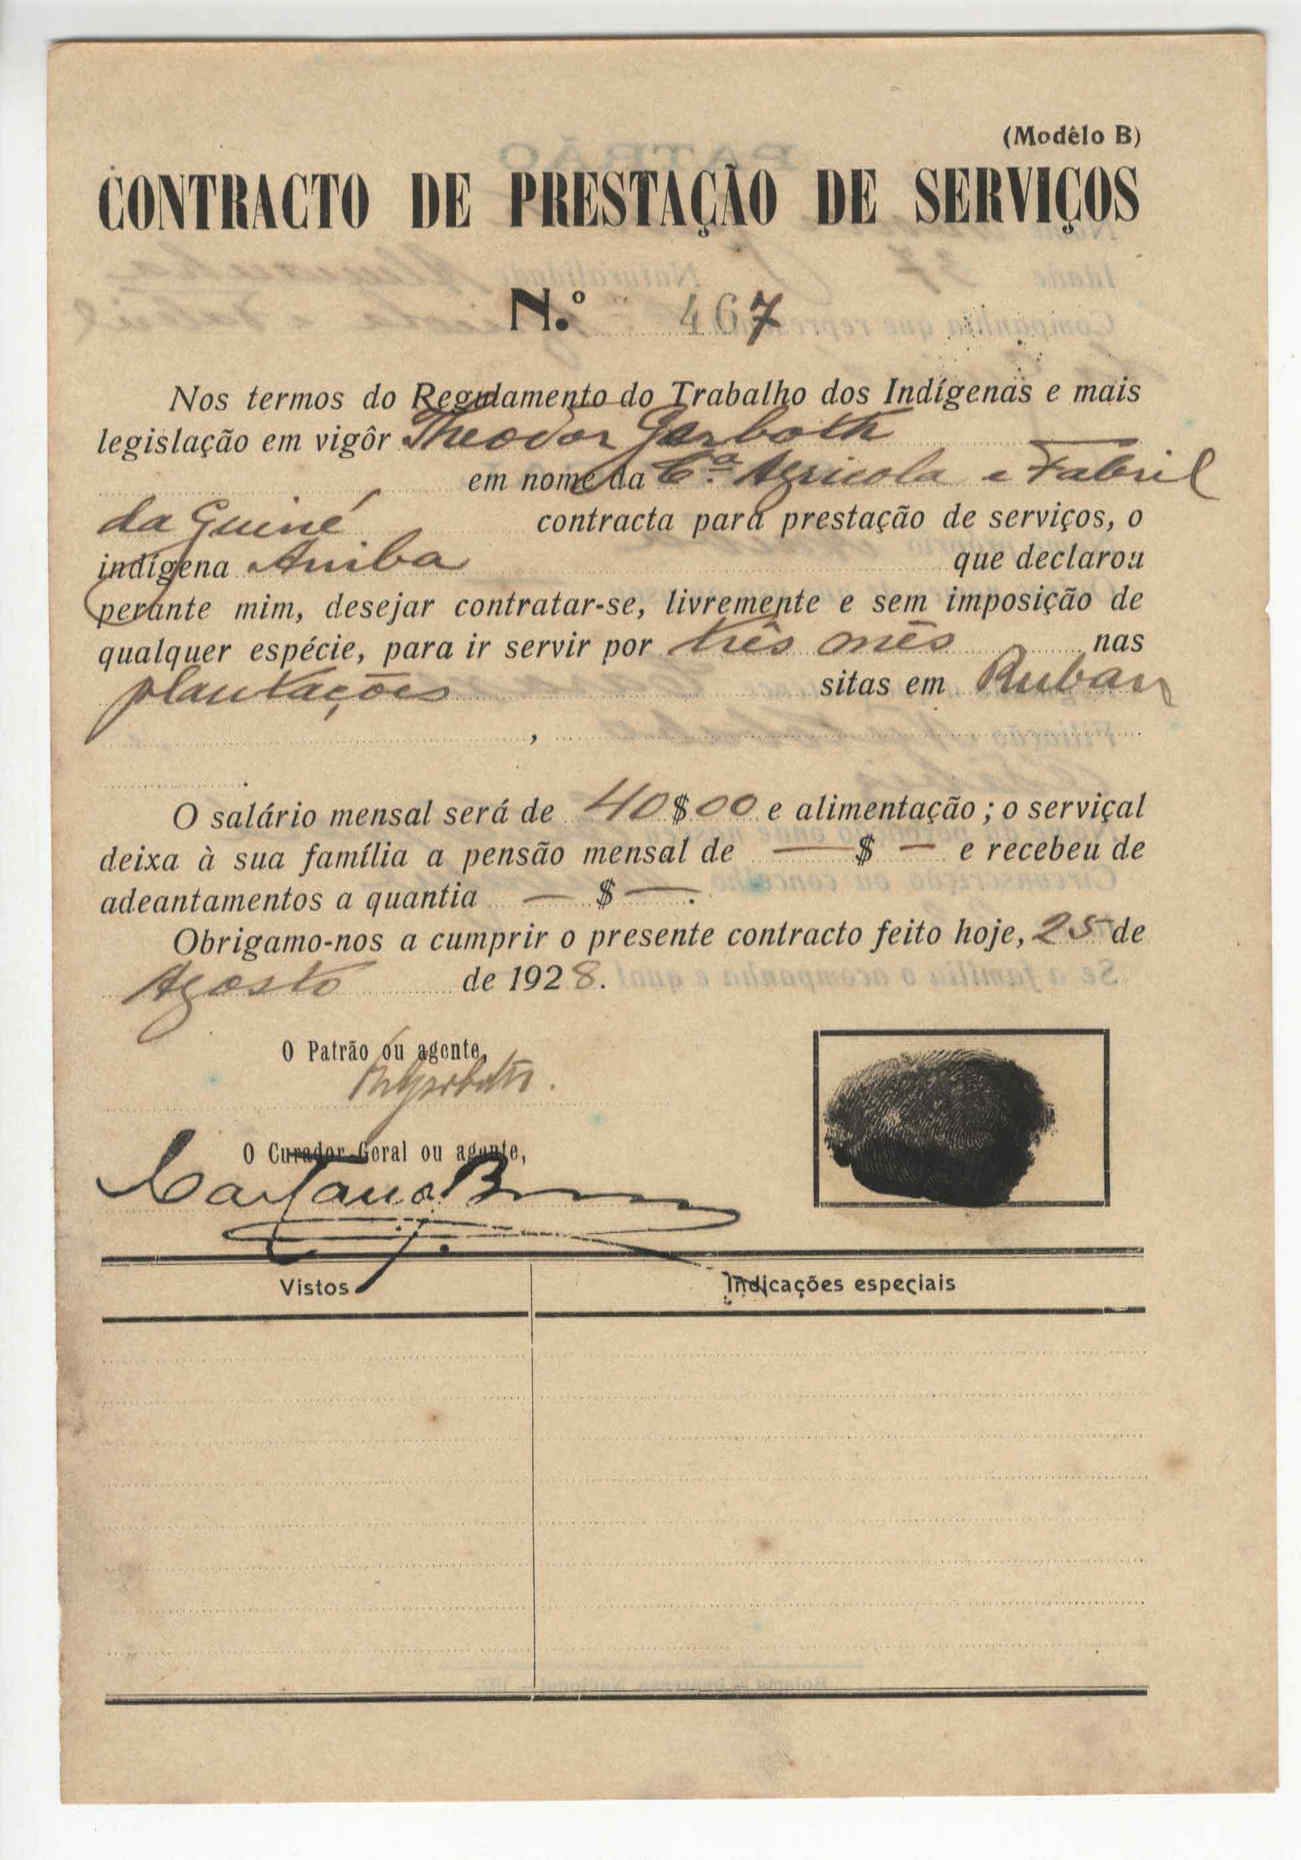 (Modêlo B)
CONTRACTO DE PRESTAÇÃO DE SERVIÇOS
N.º 467
Nos termos do Regulamento do Trabalho dos Indígenas e mais
legislação em vigôr Theodor Gerboth
em nome da Cª. Agricola e Fabril
da Guiné contracta para prestação de serviços, o
indígena Aniba que declarou
perante mim, desejar contratar-se, livremente e sem imposição de
qualquer espécie, para ir servir por três mês nas
plantações sitas em Ruban
,
O salário mensal será de 40$00 e alimentação; o serviçal
deixa à sua família a pensão mensal de — $ — e recebeu de
adeantamentos a quantia — $ — .
Obrigamo-nos a cumprir o presente contracto feito hoje, 25 de
Agosto de 1928.
O Patrão ou agente,
O Curador Geral ou agente,
Caetano B
Vistos
Indicações especiais